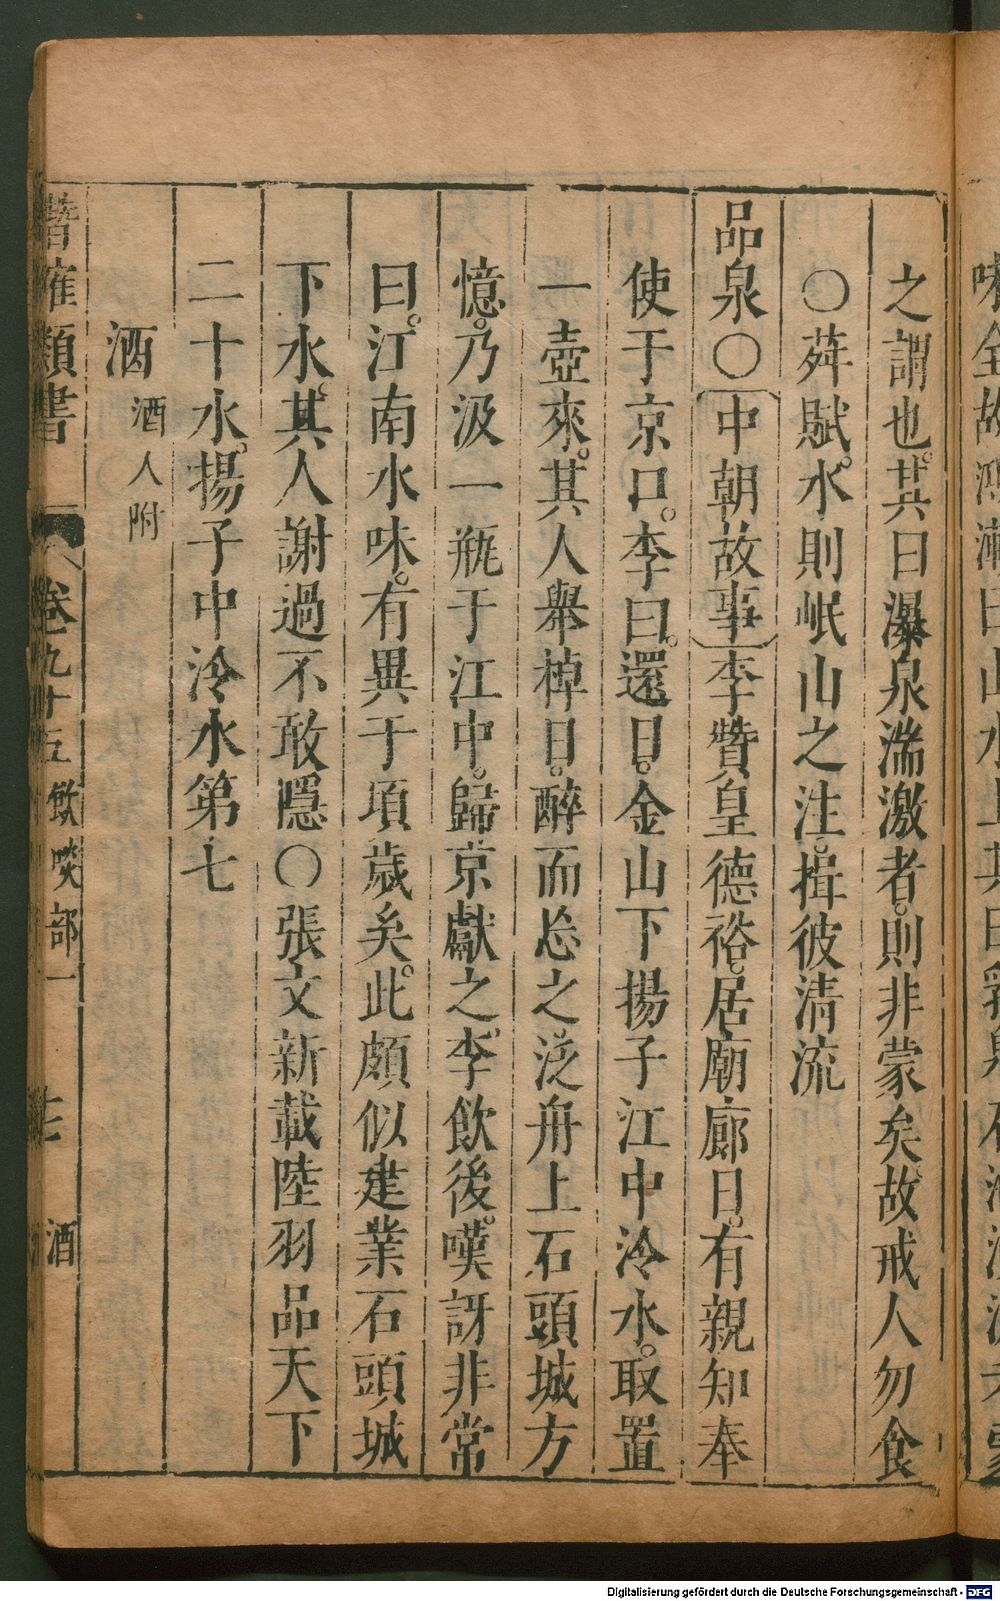 之謂也。其曰瀑泉湍激者。則非蒙矣。故戒人勿食
〇荈賦。水則岷山之注。揖彼清流
品泉〇〔中朝故事〕李贊皇德裕。居廟廊日。有親知奉
使于京口。李曰。還日。金山下揚子江中泠水。取置
一壺來。其人舉棹日。醉而忘之。泛舟上石頭城方
憶。乃汲一瓶于江中。歸京獻之。李飲後。嘆訝非常
曰。江南水味。有異于頃歲矣。此頗似建業石頭城
下水。其人謝過不敢隱〇張文新載陸羽品天下
二十水。揚子中泠水第七
酒 酒人附
類書 卷九十五 飲啖部一 七 酒
Digitalisierung gefördert durch die Deutsche Forschungsgemeinschaft - DFG